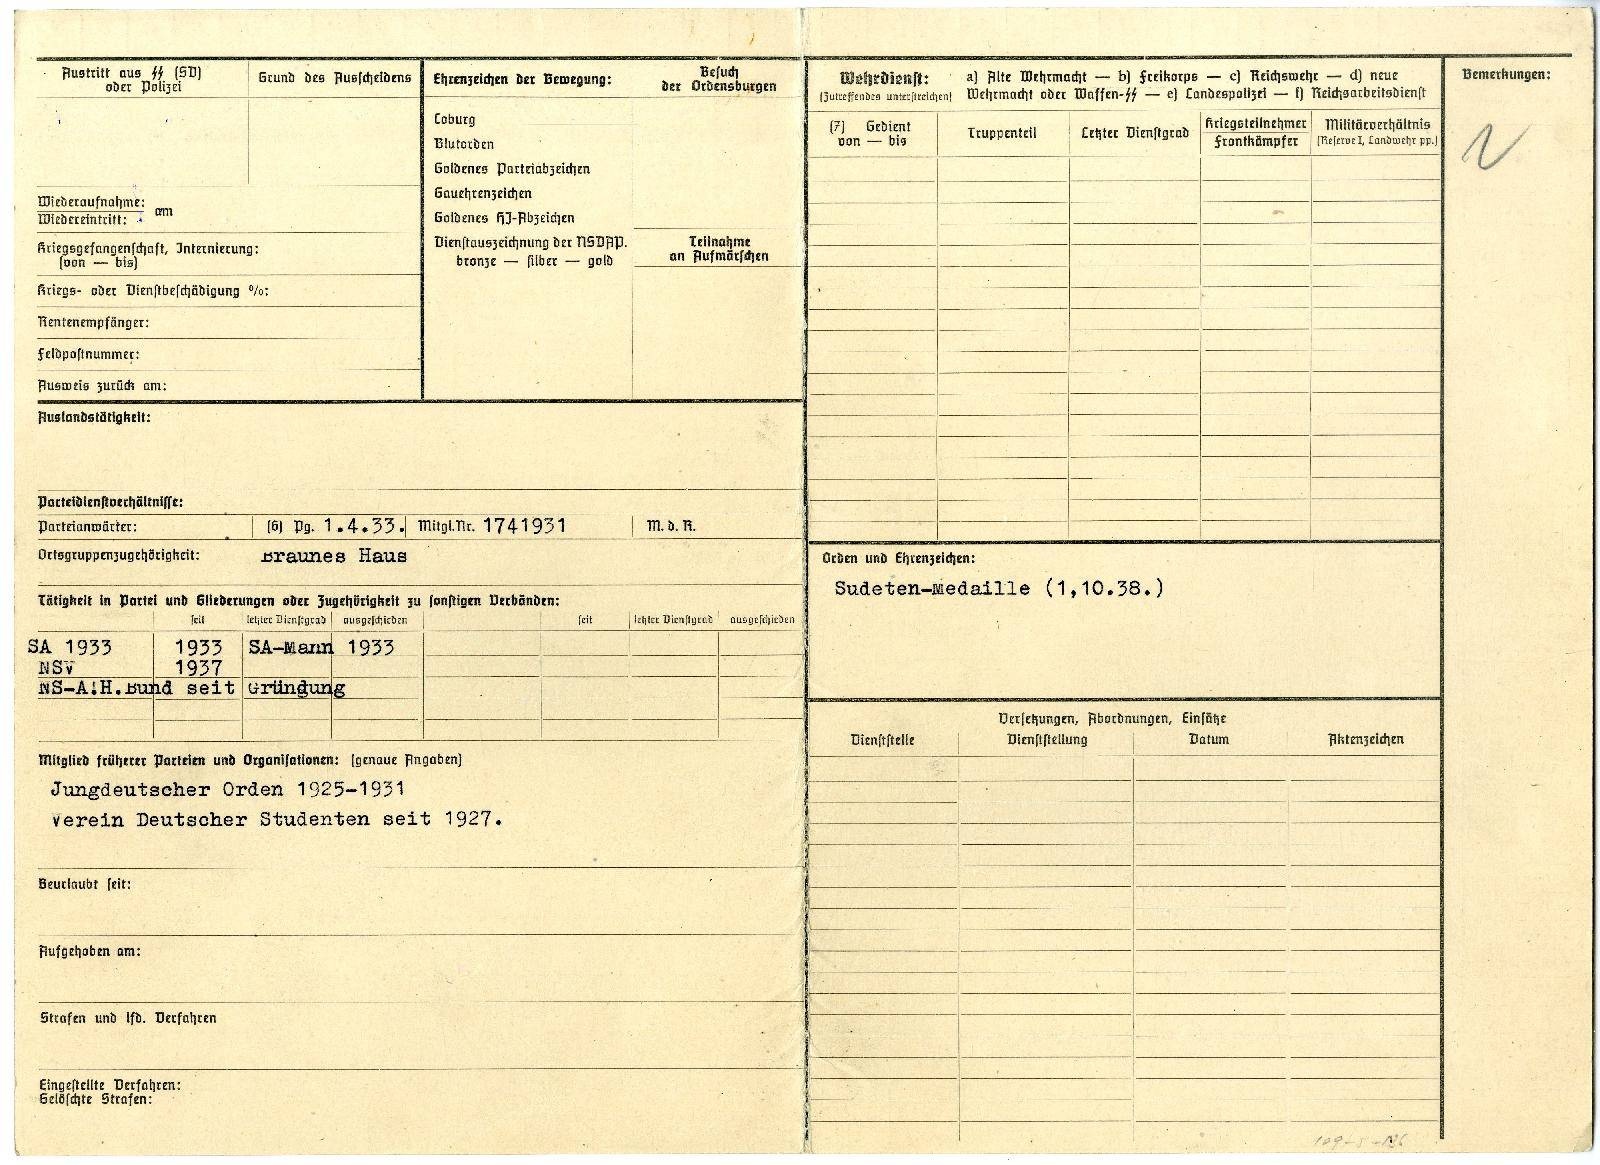 Austritt aus SS (SD)
oder Polizei
Grund des Ausscheidens
Wiederaufnahme:
Wiedereintritt: am
Kriegsgefangenschaft, Internierung:
(von — bis)
Kriegs- oder Dienstbeschädigung %:
Rentenempfänger:
Feldpostnummer:
Ausweis zurück am:
Ehrenzeichen der Bewegung:
Coburg
Blutorden
Goldenes Parteiabzeichen
Gauehrenzeichen
Goldenes HJ-Abzeichen
Dienstauszeichnung der NSDAP.
bronze — silber — gold
Besuch
der Ordensburgen
Teilnahme
an Aufmärschen
Auslandstätigkeit:
Parteidienstverhältnisse:
Parteianwärter: (6) Pg. 1.4.33. Mitgl.Nr. 1741931 M. d. R.
Ortsgruppenzugehörigkeit: Braunes Haus
Tätigkeit in Partei und Gliederungen oder Zugehörigkeit zu sonstigen Verbänden:
seit letzter Dienstgrad ausgeschieden seit letzter Dienstgrad ausgeschieden
SA 1933 1933 SA-Mann 1933
NSV 1937
NS-A!H.Bund seit Gründung
Mitglied früherer Parteien und Organisationen: (genaue Angaben)
Jungdeutscher Orden 1925-1931
Verein Deutscher Studenten seit 1927.
Beurlaubt seit:
Aufgehoben am:
Strafen und lfd. Verfahren
Eingestellte Verfahren:
Gelöschte Strafen:
Wehrdienst: a) Alte Wehrmacht — b) Freikorps — c) Reichswehr — d) neue
(Zutreffendes unterstreichen) Wehrmacht oder Waffen-SS — e) Landespolizei — f) Reichsarbeitsdienst
(7) Gedient
von — bis
Truppenteil
Letzter Dienstgrad
Kriegsteilnehmer
Frontkämpfer
Militärverhältnis
(Reserve I, Landwehr pp.)
Orden und Ehrenzeichen:
Sudeten-Medaille (1,10.38.)
Versetzungen, Abordnungen, Einsätze
Dienststelle Dienststellung Datum Aktenzeichen
Bemerkungen: